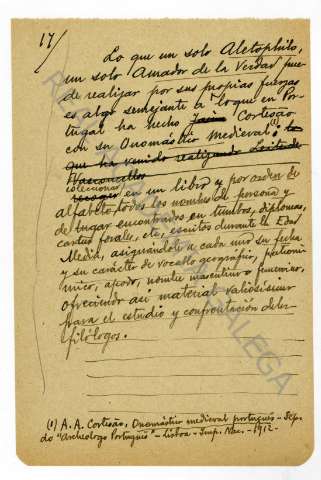 17/
Lo que un solo Aletophilo,
un solo Amador de la Verdad pue-
de realizar por sus propias fuerzas
es algo semejante a lo que en Por-
tugal ha hecho Cortesão
con su Onomástico Medieval (1): lo
que ha venido realizando
coleccionar
recoger en un libro y por orden de
alfabeto, todos los nombres de persona y
de lugar encontrados en tumbos, diplomas,
cartas forales, etc, escritos durante la Edad
Media, asignándole a cada uno su fecha
y su carácter de vocablo geográfico, patroní-
mico, apodo, nombre masculino o femenino,
ofreciendo así material valiosísimo
para el estudio y confrontación de los
filólogos.
(1) A. A. Cortesão, Onomástico medieval português - Sep.
do "Archeologo Português" - Lisboa - Imp. Nac. - 1912.
REAL ACADEMIA GALEGA